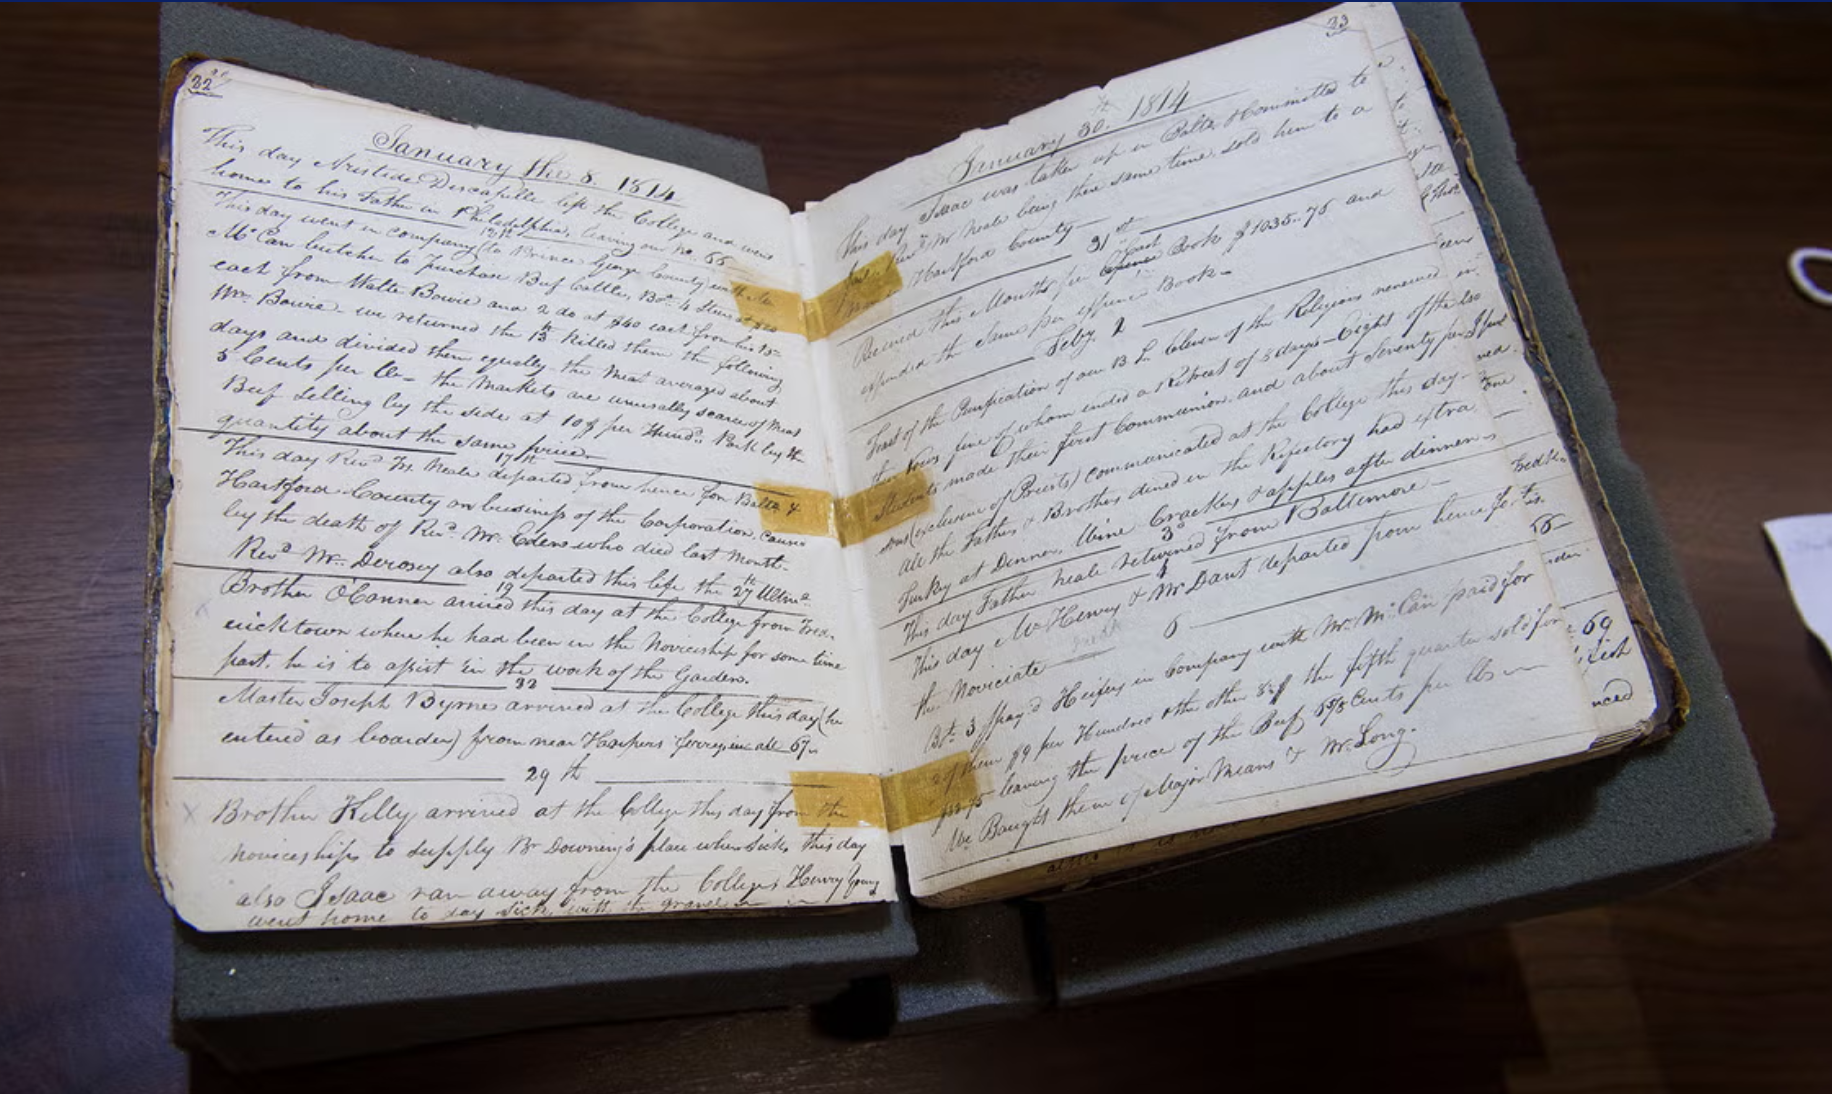 32
January the 8. 1814
This day Aristide Descapelle left the College and went
home to his Father in Philadelphia, leaving our No. 66
12th
This day went in company (to Prince George County with
McCan butcher to purchase Beef Cattle, Bot. 4 Steers at
each from Walter Bowie and 2 do at $40 each from his
Wm. Bowie - we returned the 13th killed them the following
days and divided them equally - the Meat averaged about
5 Cents per lb - the Markets are unusually scarce of Meat
Beef selling by the side at 10$ per Hund. Pork by the
quantity about the same price.
17th
This day Revd. Fr. Neale departed from hence for Balte. &
Hartford County on business of the Corporation, cause
by the death of Revd. Mr. Eden who died last Month.
Revd. Mr. Derosey also departed this life the 27th Ultmo.
19
Brother O'Conner arrived this day at the College from Fred-
ricktown where he had been in the Noviceship for some time
past. he is to assist in the work of the Garden.
Master Joseph Byrnes arrived at the College this day (he
entered as boarder) from near Harpers ferry, in all 67
29th
Brother Kelly arrived at the College this day from the
noviceships to supply Br Downing's place when sick, this day
also Isaac ran away from the College; Henry
went home to day sick, with the gravel
33
January 30th. 1814
This day Isaac was taken up in Balte. & Committed to
Jail Revd. Mr Neale being there same time, sold him to a
in Hartford County
31st
Received this Months per Book $1035..75 and
expended the same per Book
Feby. 2
Feast of the Purification of our B. L. Eleven of the Religious renewed
their Vows five of whom ended a Retreat of 8 days - Eight of the
Students made their first Communion, and about Seventy
(exclusive of Priests) communicated at the College this day
all the Fathers & Brothers dined in the Refectory had extra
Turkey at Dinner, Wine Crackers & apples after dinner
3d
This day Father Neale returned from Baltimore
4
This day McHenry & Mr Dant departed from hence for
the Noviciate
6
Bot. 3 spay'd Heifers in Company with Mr. McCan paid for
2 of them $9 per Hundred & the other 8$ the fifth quarter sold for
leaving the price of the Beef Cents per lb
We Bought them of Major Means & Mr. Long.